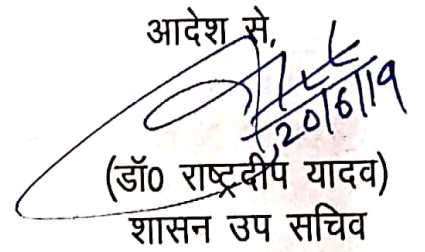 आदेश से,
20/6/19
(डॉ0 राष्ट्रदीप यादव)
शासन उप सचिव